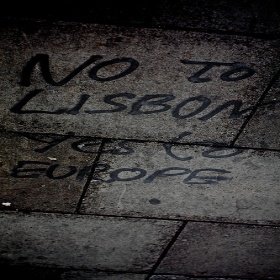 NO TO
LISBON
Yes to
EUROPE.